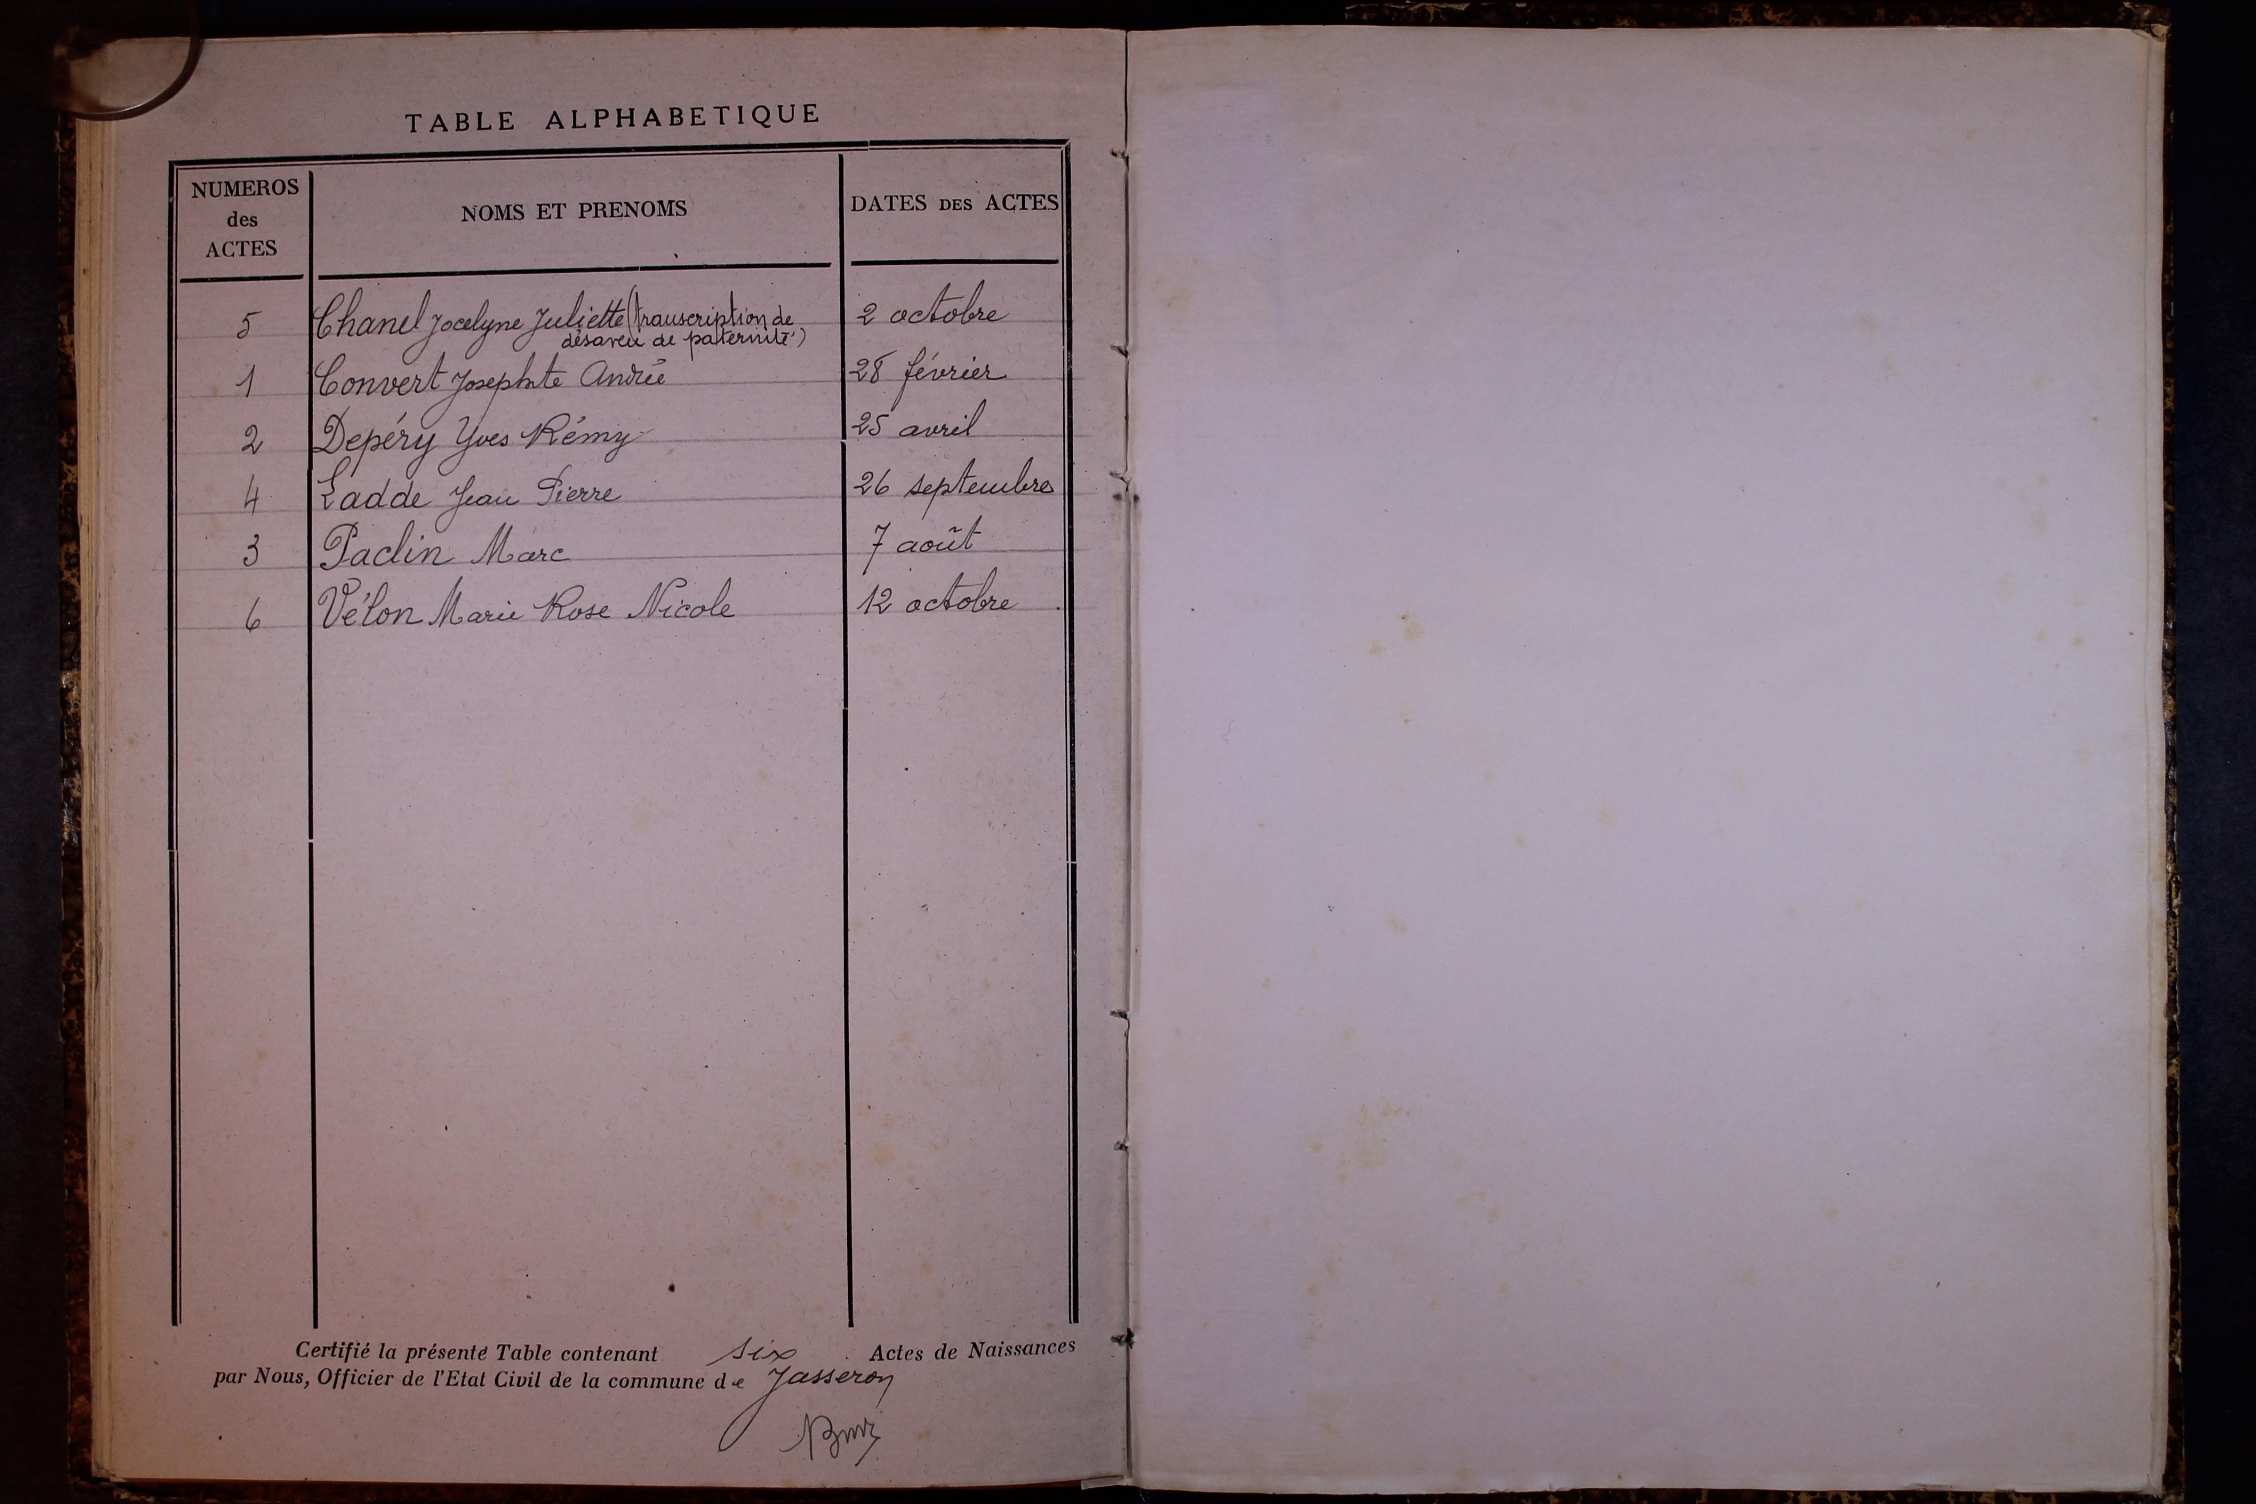 TABLE ALPHABETIQUE
NUMEROS des ACTES
NOMS ET PRENOMS
DATES DES ACTES
5 Chanel Jocelyne Juliette (transcription de 2 octobre
désaveu de paternité)
1 Convert Josephte Andrée 28 février
2 Depéry Yves Rémy 25 avril
4 Ladde Jean Pierre 26 septembre
3 Paclin Marc 7 août
6 Vélon Marie Rose Nicole 12 octobre
Certifié la présente Table contenant six Actes de Naissances
par Nous, Officier de l'Etat Civil de la commune de Jasseron